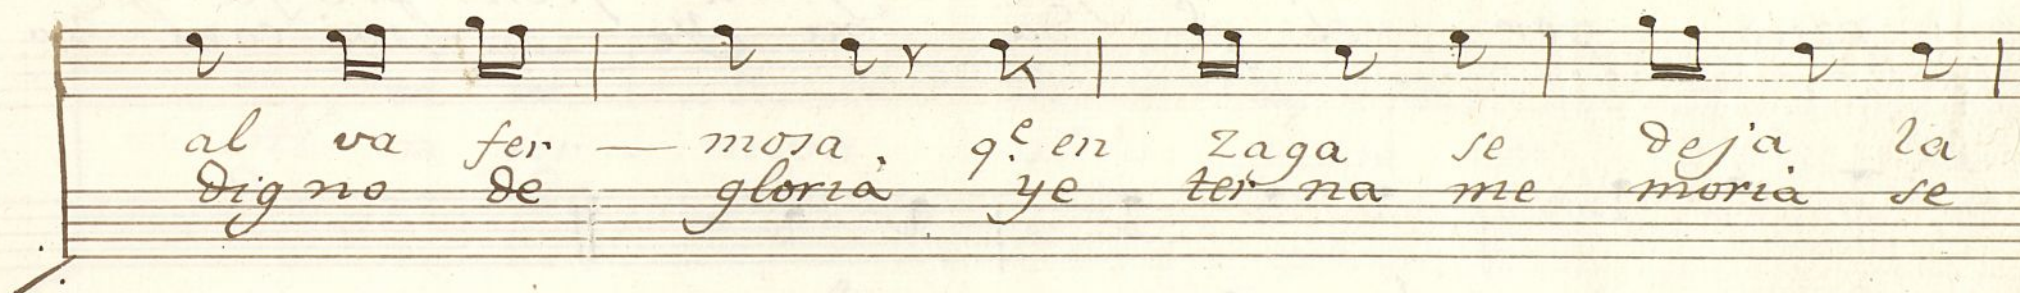 al va fer — mosa, q.e en zaga se deja la
digno de gloria ye ter na me moria se